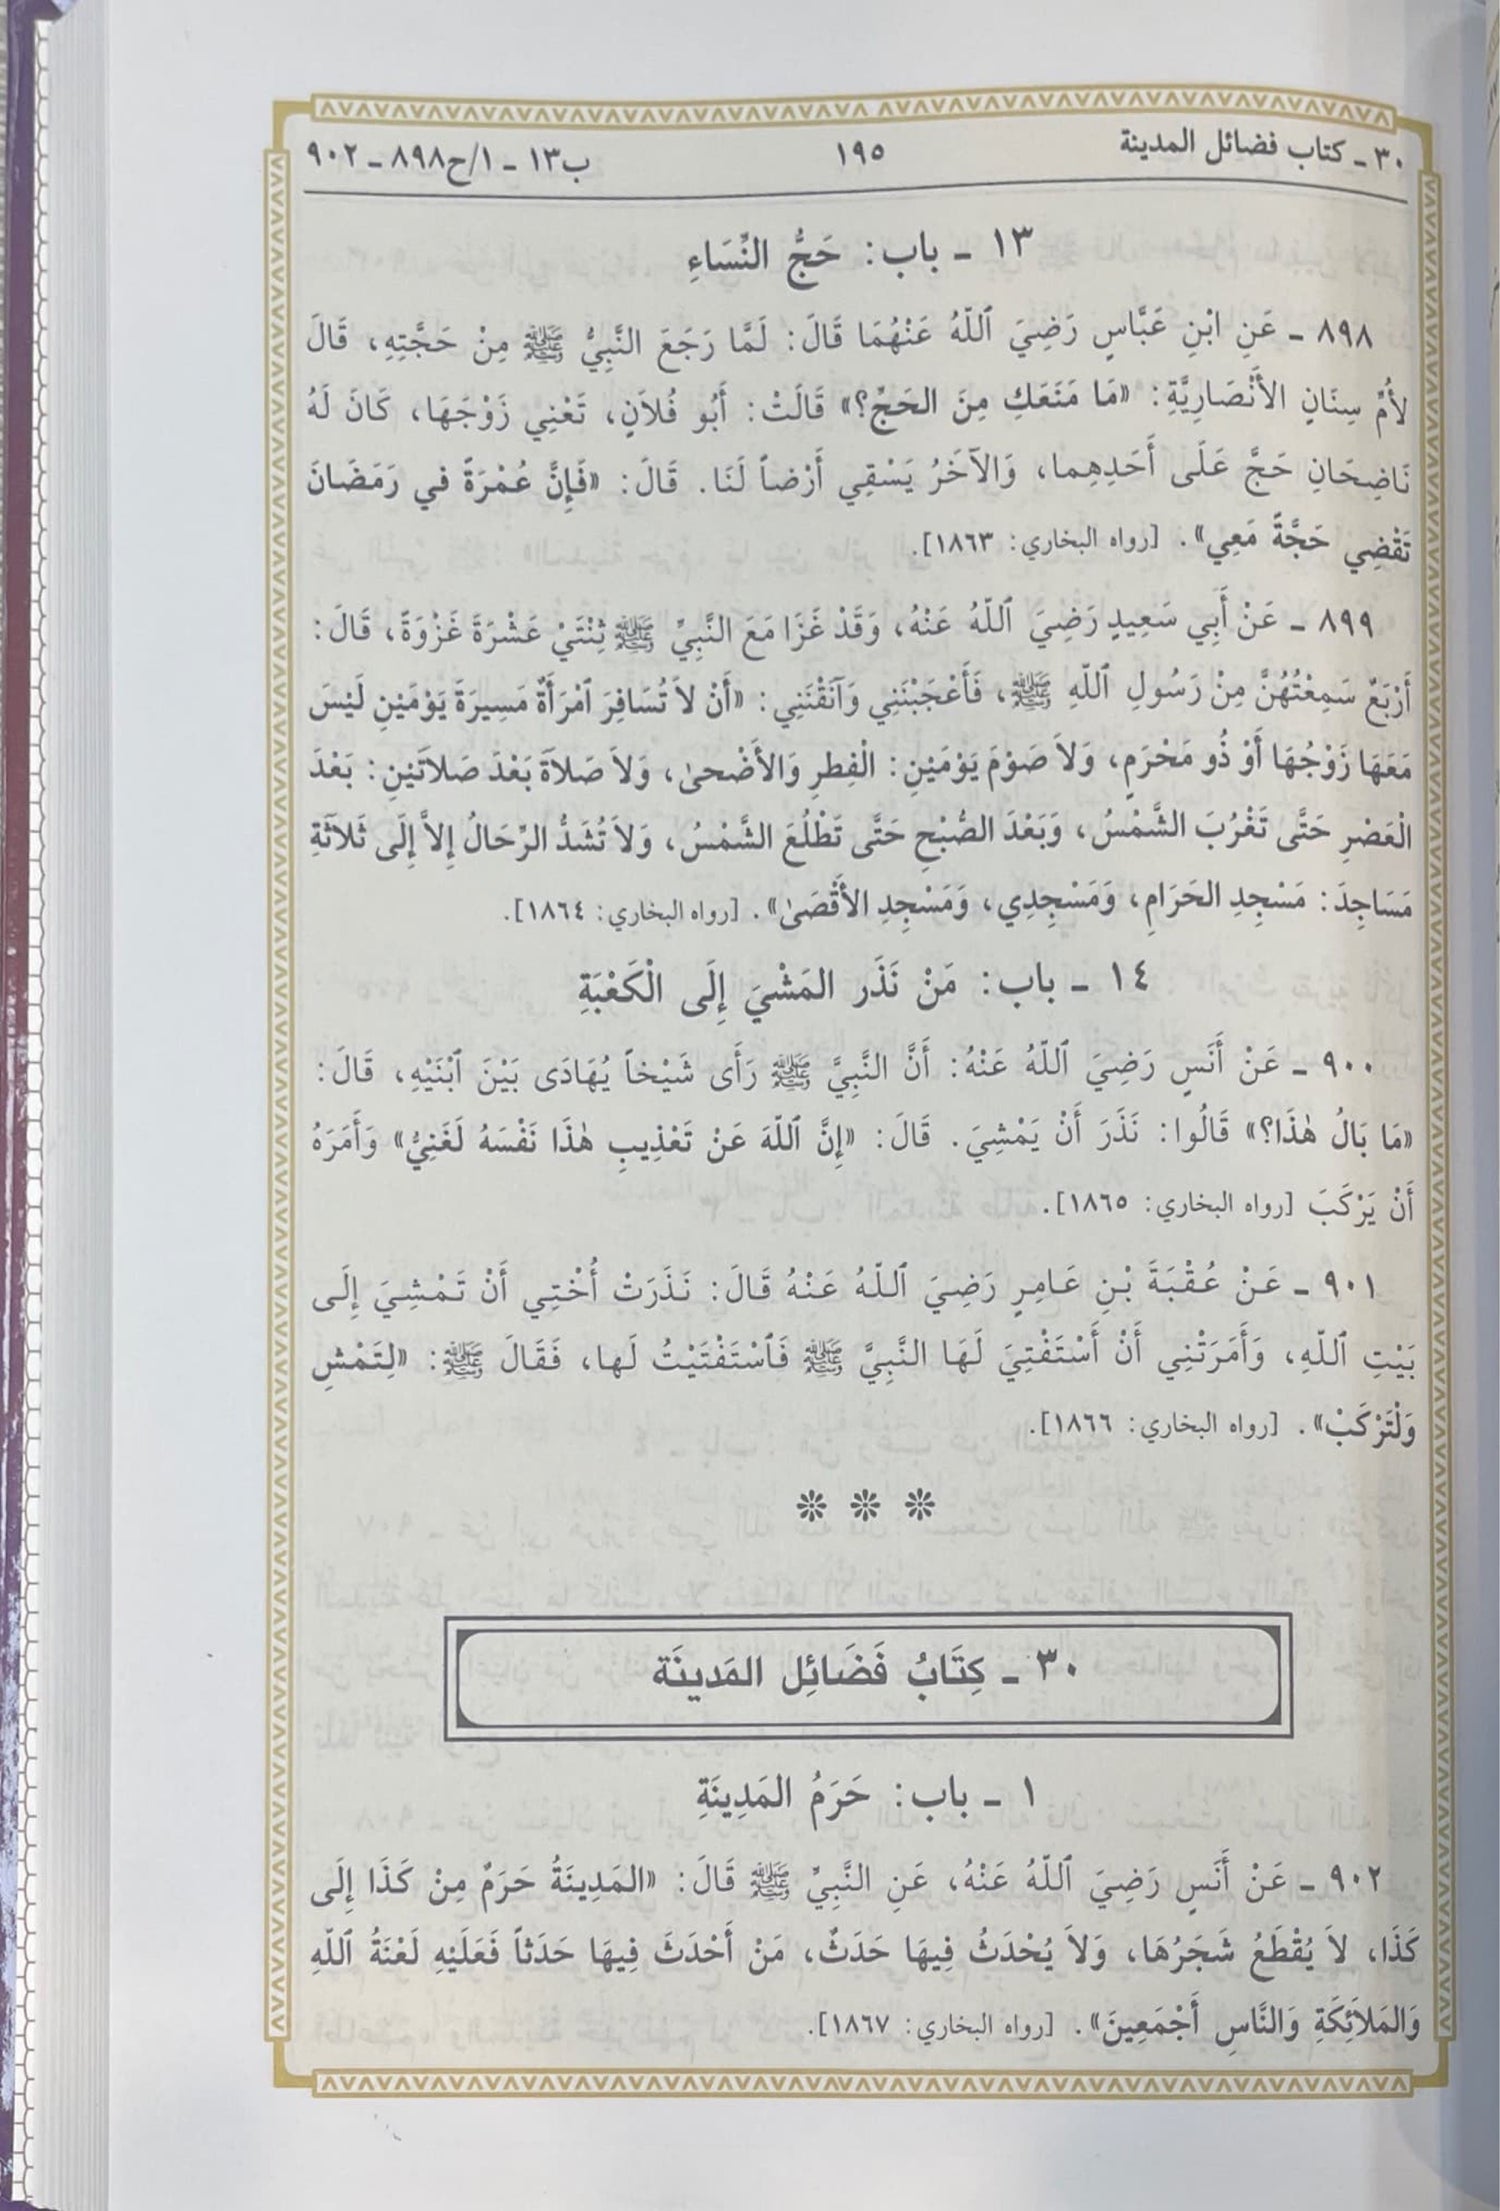 ٣٠ - كتاب فضائل المدينة ١٩٥ ب١٣ - ١/ح٨٩٨ - ٩٠٢
١٣ - باب: حَجُّ النِّسَاءِ
٨٩٨ - عَنِ ابْنِ عَبَّاسٍ رَضِيَ ٱللّهُ عَنْهُمَا قَالَ: لَمَّا رَجَعَ النَّبِيُّ ﷺ مِنْ حَجَّتِهِ، قَالَ
لأُمِّ سِنَانٍ الأَنْصَارِيَّةِ: «مَا مَنَعَكِ مِنَ الحَجِّ؟» قَالَتْ: أَبُو فُلاَنٍ، تَعْنِي زَوْجَهَا، كَانَ لَهُ
نَاضِحَانِ حَجَّ عَلَى أَحَدِهِما، وَالآخَرُ يَسْقِي أَرْضاً لَنَا. قَالَ: «فَإِنَّ عُمْرَةً في رَمَضَانَ
تَقْضِي حَجَّةً مَعِي». [رواه البخاري: ١٨٦٣].
٨٩٩ - عَنْ أَبِي سَعِيدٍ رَضِيَ ٱللّهُ عَنْهُ، وَقَدْ غَزَا مَعَ النَّبِيِّ ﷺ ثِنْتَيْ عَشْرَةَ غَزْوَةً، قَالَ:
أَرْبَعٌ سَمِعْتُهُنَّ مِنْ رَسُولِ ٱللّهِ ﷺ، فَأَعْجَبْنَنِي وَآنَقْنَنِي: «أَنْ لاَ تُسَافِرَ ٱمْرَأَةٌ مَسِيرَةَ يَوْمَيْنِ لَيْسَ
مَعَهَا زَوْجُهَا أَوْ ذُو مَحْرَمٍ، وَلاَ صَوْمَ يَوْمَيْنِ: الْفِطرِ وَالأَضْحىٰ، وَلاَ صَلاَةَ بَعْدَ صَلاَتَيْنِ: بَعْدَ
الْعَصْرِ حَتَّى تَغْرُبَ الشَّمْسُ، وَبَعْدَ الصُّبْحِ حَتَّى تَطْلُعَ الشَّمْسُ، وَلاَ تُشَدُّ الرِّحَالُ إِلاَّ إِلَى ثَلاَثَةِ
مَسَاجِدَ: مَسْجِدِ الحَرَامِ، وَمَسْجِدِي، وَمَسْجِدِ الأَقْصَىٰ». [رواه البخاري: ١٨٦٤].
١٤ - باب: مَنْ نَذَر المَشْيَ إِلَى الْكَعْبَةِ
٩٠٠ - عَنْ أَنَسٍ رَضِيَ ٱللّهُ عَنْهُ: أَنَّ النَّبِيَّ ﷺ رَأَى شَيْخاً يُهَادَى بَيْنَ ٱبْنَيْهِ، قَالَ:
«مَا بَالُ هٰذَا؟» قَالُوا: نَذَرَ أَنْ يَمْشِيَ. قَالَ: «إِنَّ ٱللّهَ عَنْ تَعْذِيبِ هٰذَا نَفْسَهُ لَغَنِيُّ» وَأَمَرَهُ
أَنْ يَرْكَبَ [رواه البخاري: ١٨٦٥].
٩٠١ - عَنْ عُقْبَةَ بْنِ عَامِرٍ رَضِيَ ٱللّهُ عَنْهُ قَالَ: نَذَرَتْ أُخْتِي أَنْ تَمْشِيَ إِلَى
بَيْتِ ٱللّهِ، وَأَمَرَتْنِي أَنْ أَسْتَفْتِيَ لَهَا النَّبِيَّ ﷺ فَٱسْتَفْتَيْتُ لَها، فَقَالَ ﷺ: «لِتَمْشِ
وَلْتَرْكَبْ». [رواه البخاري: ١٨٦٦].
٣٠ - كِتَابُ فَضَائِل المَدينَة
١ - باب: حَرَمُ المَدِينَةِ
٩٠٢ - عَنْ أَنَسٍ رَضِيَ ٱللّهُ عَنْهُ، عَنِ النَّبِيِّ ﷺ قَالَ: «المَدِينَةُ حَرَمٌ مِنْ كَذَا إِلَى
كَذَا، لاَ يُقْطَعُ شَجَرُهَا، وَلاَ يُحْدَثُ فِيهَا حَدَثٌ، مَنْ أَحْدَثَ فِيهَا حَدَثاً فَعَلَيْهِ لَعْنَةُ ٱللّهِ
وَالمَلاَئِكَةِ وَالنَّاسِ أَجْمَعِينَ». [رواه البخاري: ١٨٦٧].